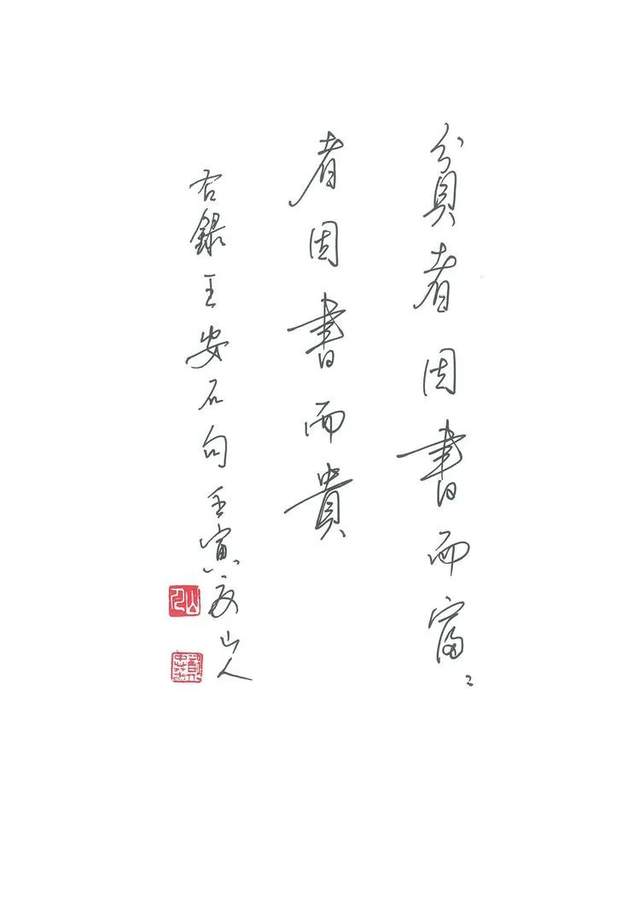 貧者因書而富〻
者因書而貴
右錄王安石句壬寅夏山人
山人